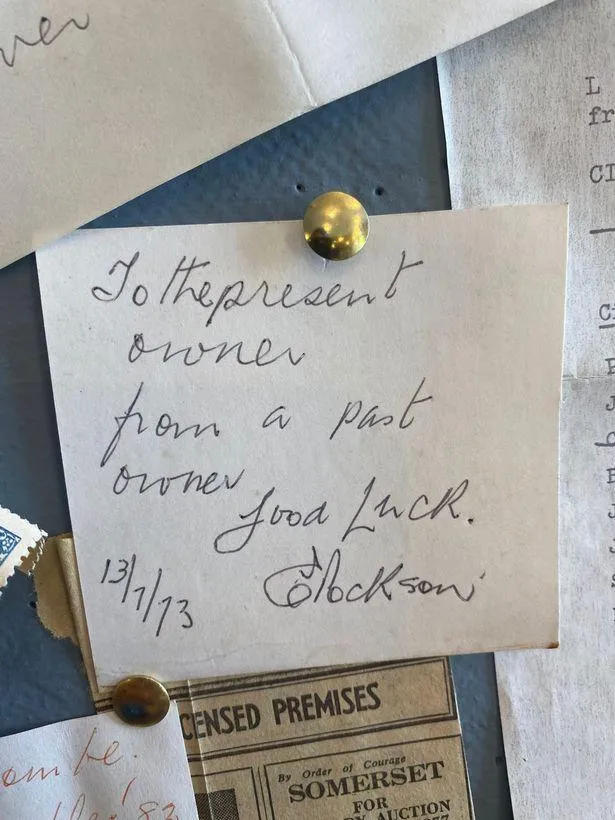 ver
L
fr
CI
To the present
owner
from a past
owner
Good Luck.
13/7/73
CENSED PREMISES
By Order of Courage
SOMERSET
FOR
AUCTION